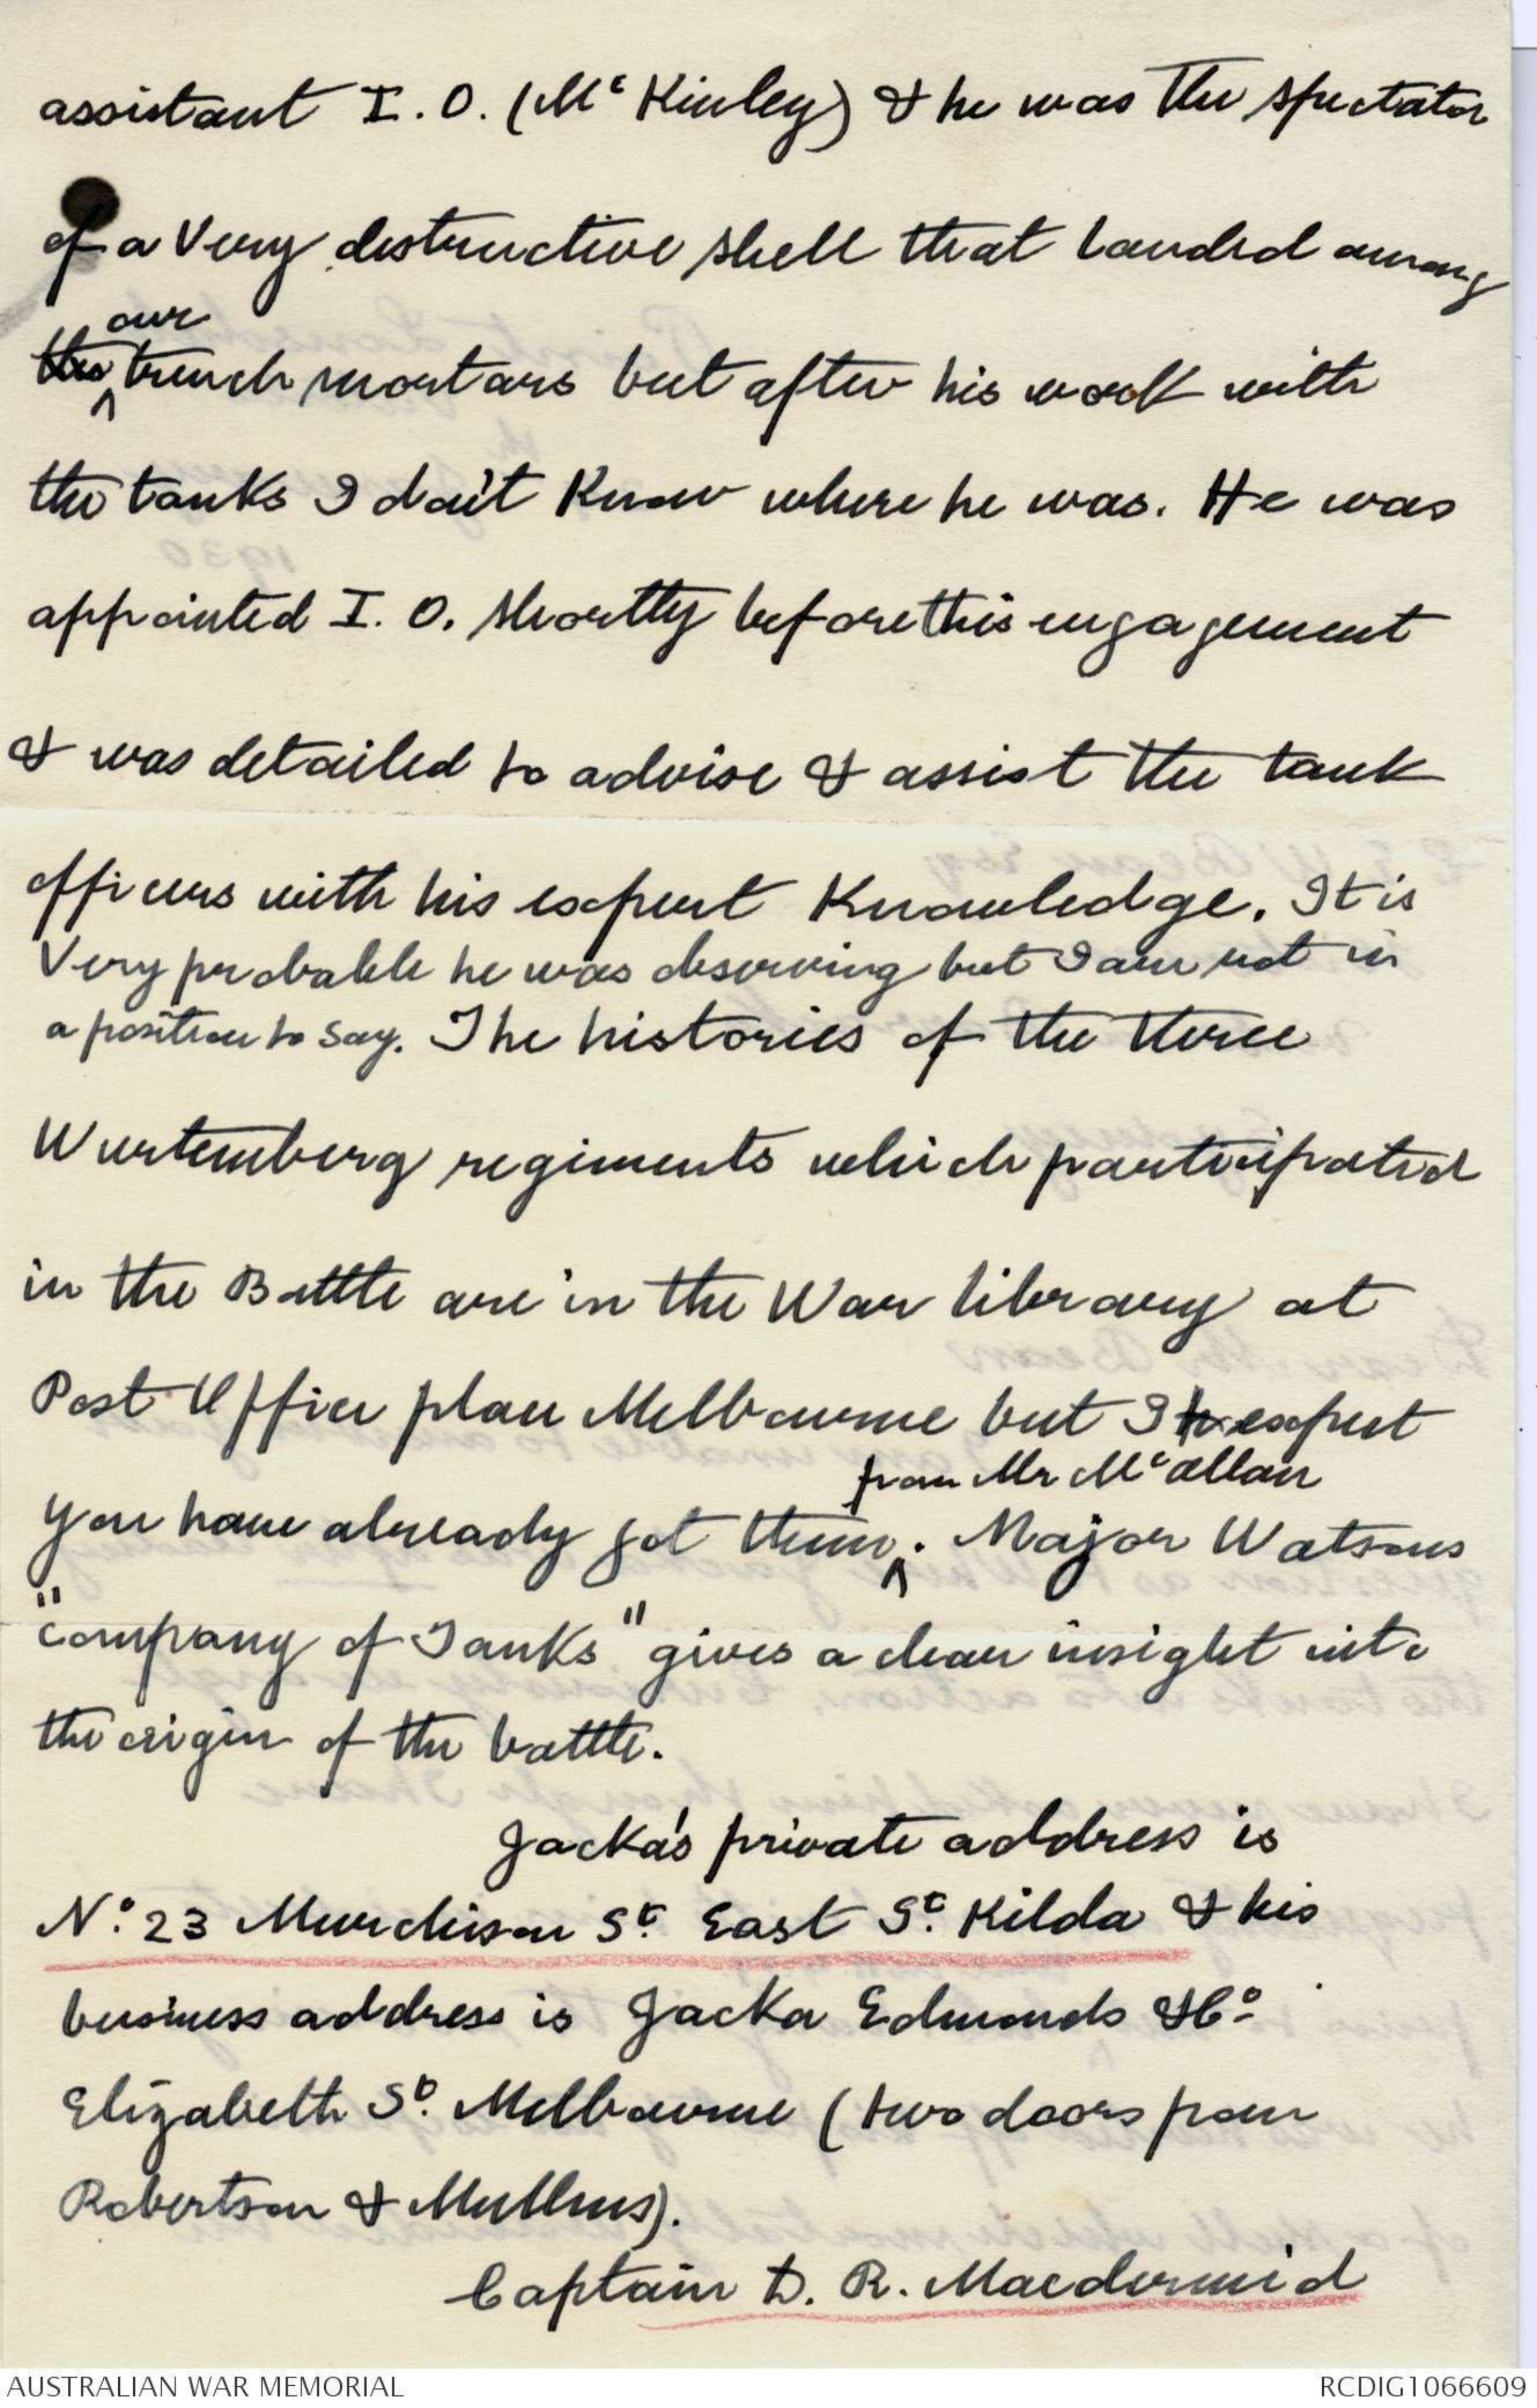 assistant I. O. (McKinley) & he was the spectator
of a Very destructive shell that landed among
the our trench mortars but after his work with
the tanks I don't Know where he was. He was
appointed I. O. shortly before this engagement
& was detailed to advise & assist the tank
officers with his expert Knowledge. It is
Very probable he was deserving but I am not in
a position to say. The histories of the three
Wurtemberg regiments which participated
in the Battle are in the War library at
Post Office place Melbourne but I expect
from Mr McAllan
you have already got them. Major Watsons
"Company of Tanks" gives a clear insight into
the origin of the battle.
Jacka's private address is
No. 23 Murchison St. East St. Kilda & his
business address is Jacka Edmonds & Co.
Elizabeth St. Melbourne (two doors from
Robertson & Mullens).
Captain D. R. Macdermid
AUSTRALIAN WAR MEMORIAL
RCDIG1066609